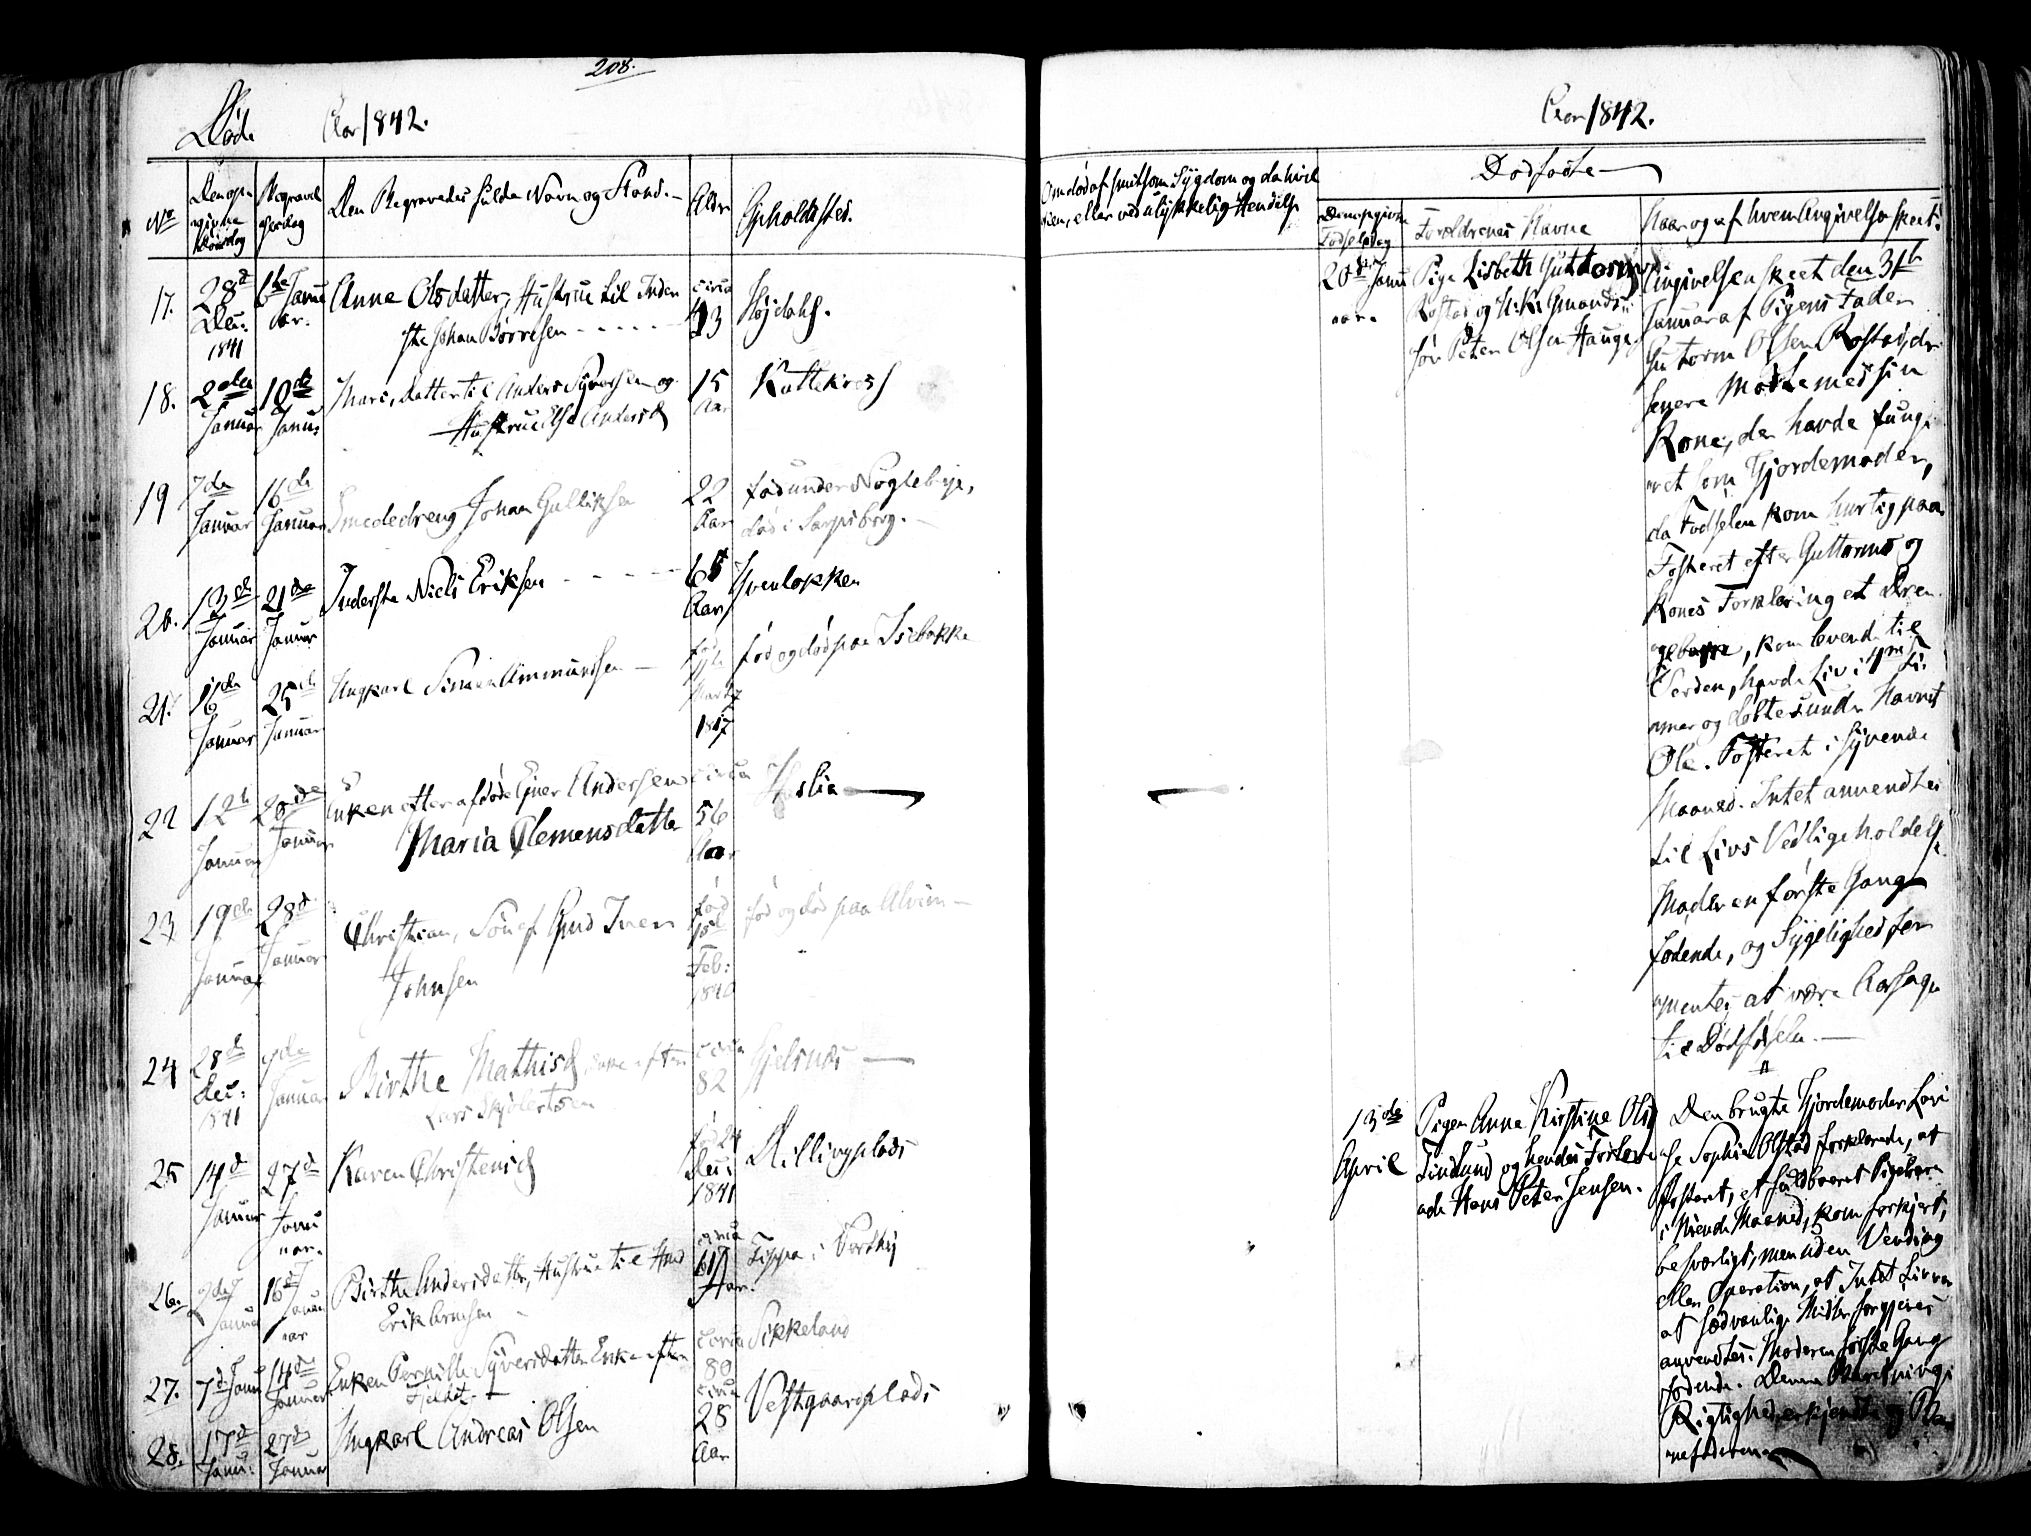 208.
Døde Aar 1842.
No
Den opgivne Dødsdag
Begravelsesdag
Den Begravedes fulde Navn og Stand.
Alder
Opholdssted.
17. 28d Dec: 1841 6te Januar. Anne Olsdatter, Hustrue til Inder
ste Johan Børresen circa 43 Højdahl.
18. 2den Januar 10de Janua Mari, datter til Anders Syversen og
Hustrue Else Andersd 15 Aar Kattekros
19 7de Januar 16de Januar Smededreng Johan Gulliksen 22 Aar født under Nøglebye,
død i Sarpsborg.
20. 13de Januar 21de Januar Inderste Niels Eriksen 65 Aar Hvenløkken
21. 16de Januar 25de Januar Ungkarl Simen Ammundsen 1817 fød og død paa Isebakke
22 12te Januar 20de Januar Enken efter afdøde Ejner Andersen
Maria Clemensdatter circa 56 Aar Haslie
23 19de Januar 28d Januar Christian, Søn af Gmd Iver
Johnsen fød Feb: 1840 fød og død paa Alvim
24 28de Dec: 1841 9de Januar Birthe Mathisd Enke efter
Lars circa 82 Gjelsnæs
25 14d Januar 27d Januar. Karen Christensd fød 24 Dec: 1841 Rillingplads
26. 9de Janua 16d Januar Birthe Andersdatter, Hustrue til Hmd
Erik circa 61 Aar. Tippa i
27. 7d Janu 14d Januar Enken Pernille Syversdatter Enke efter
circa 80 Sikkeland
28. 17d Janu: 27d Januar Ungkarl Andreas Olsen circa 28 Aar Vestgaardplads
Aar 1842.
Om død af smitsom Sygdom og da hvil
ken, eller ved ulykkelig Hendelse
Dødfødte
Den opgivne Fødselsdag
Forældrenes Navne
Naar og af hvem Angivelse skeet.
20de Januar.
Pige Lisbeth Guttormsd
Rostad og
Peter Olsen Hauge
Angivelsen skeet den 31te
Januar af Pigens Fader
Guttorm Olsen Rostad, der
Kone, der havde fungi
ret som Gjordemoder,
da Fødselen kom hurtig paa.
Fosteret efter Guttorms og
Kones Forklaring et Dren
gebarn, kom levende til
Verden, havde Liv i
og døbtes under Navnet
Ole. Fosteret i syvende
Maaned. Intet anvendtes
til Livs Vedligeholdelse.
Moderen første Gang
fødende, og Sygelighed for
mentes at være Aarsage
til Dødfødselen.
13de April
Pigen Anne Kirstine Olsd
Tindlund og hendes Forlov
ede Hans Peter Jensen.
Den brugte Gjordemoder Lovi
se Sophie Olstad forklarede, at
Fosteret, et fuldbaaret Pigebarn
i Niende Maaned, kom forkjert,
besværligt, men uden Vending
eller Operation, at Intet Liv var
at sædvanlige Midler forgjeves
anvendtes. Moderen første Gang
fødende. Denne Beretnings
Rigtighed erkjendte og Bar
nefaderen